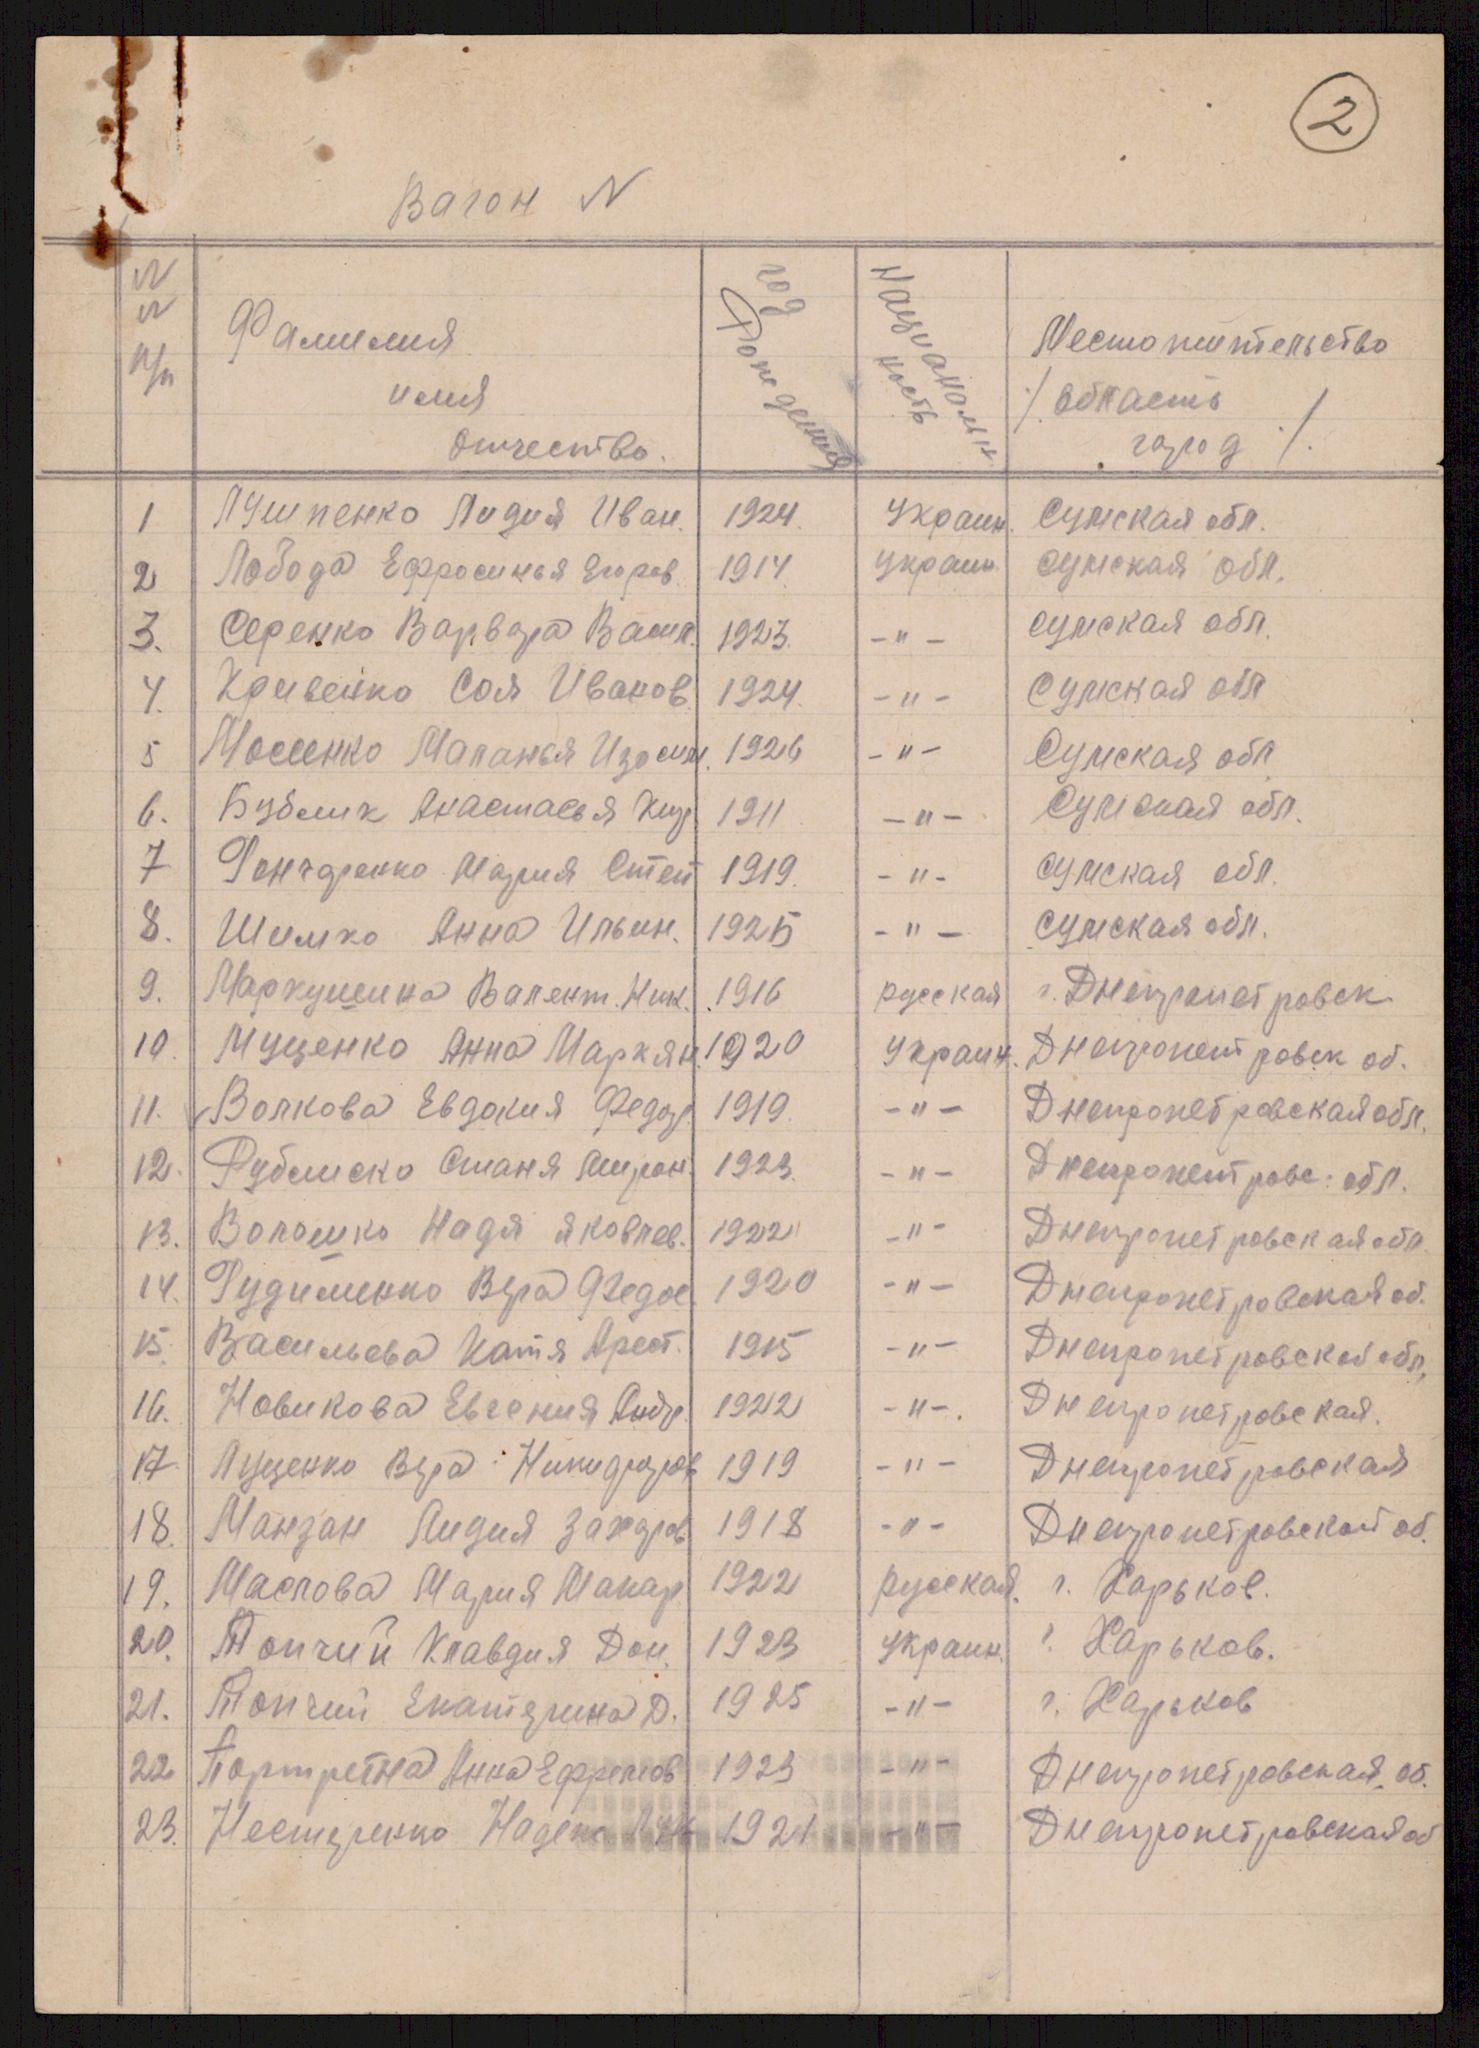 2
Вагон N
N N п/п
Фамилия имя отчество.
год рождения
Национальность
Местожительство /область город/.
1 Лушпенко Лидия Иван. 1924. Украин. Сумская обл.
2 Лобода Ефросинья Егоров. 1914. Украин. Сумская обл.
3. Серенко Варвара Васил. 1923. -"- Сумская обл.
4. Кривенко Соля Иванов. 1924. -"- Сумская обл
5 Мосенко Маланья Изосим. 1926 -"- Сумская обл
6. Бублик Анастасья 1911 -"- Сумская обл.
7 Гончаренко Мария Степ 1919. -"- Сумская обл.
8. Шимко Анна Ильин. 1925 -"- Сумская обл.
9. Маркушина Валент. Ник. 1916 русская г. Днепропетровск
10. Муценко Анна Маркян. 1920 Украин. Днепропетровск об.
11. Волкова Евдокия Федор. 1919. -"- Днепропетровская обл.
12. Рубшеско Стания Мирон. 1923. -"- Днепропетровс. обл.
13. Волошко Надя Яковлев. 1922 -"- Днепропетровская обл
14. Гудименко Вера Федос. 1920 -"- Днепропетровская об.
15. Васильева Катя Арест. 1915 -"- Днепропетровской обл.
16. Новикова Евгения Андр. 1922 -"-. Днепропетровская.
17 Луценко Вера Никифоров 1919 -"- Днепропетровская
18. Манзан Лидия Захаров 1918 -"- Днепропетровской об.
19. Маслова Мария Макар 1922 русская. г. Харьков.
20. Топчий Клавдия Дон. 1923 Украин. г. Харьков.
21. Топчий Екатерина Д. 1925 -"- г. Харьков
22 Портретна Анна Ефремов 1923 -"- Днепропетровская. об.
23. Нестеренко Надежда 1921 -"- Днепропетровская об